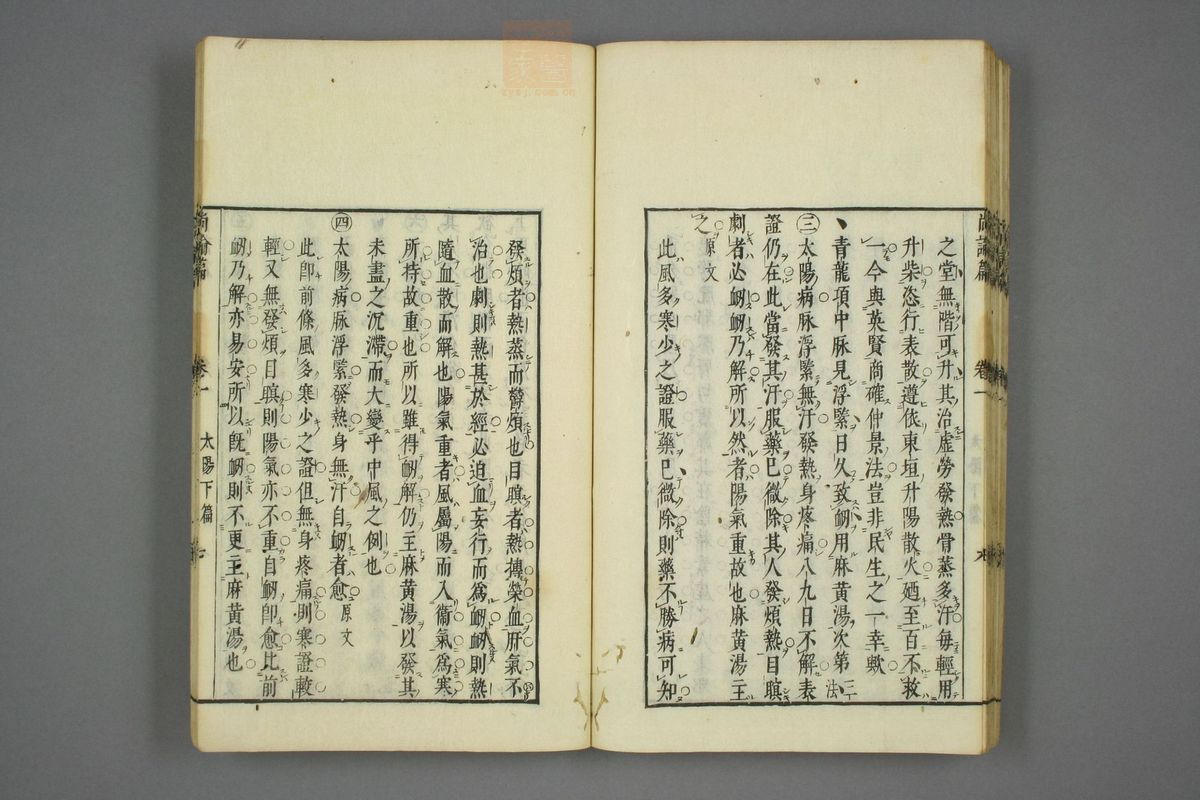 尚論篇　卷一
之堂無階可升其治虛勞發熱骨蒸多汗每輕用
升柴恣行表散遵依東垣升陽散火廼至百不救
一今與英賢商確仲景法豈非民生之一幸歟
青龍項中脉見浮緊日久致衂用麻黃湯次第二法
㊂太陽病脉浮緊無汗發熱身疼痛八九日不解表
證仍在此當發其汗服藥已微除其人發煩熱目瞑
劇者必衂衂乃解所以然者陽氣重故也麻黃湯主
之原文
此風多寒少之證服藥已微除則藥不勝病可知
發煩者熱蒸而鬱煩也目瞑者熱摶榮血肝氣不
治也劇則熱甚於經必迫血妄行而爲衂衂則熱
隨血散而解也陽氣重者風屬陽而入衞氣爲寒
所持故重也所以雖得衂解仍主麻黃湯以發其
未盡之沉滯而大變乎中風之例也
㊃太陽病脉浮緊發熱身無汗自衂者愈原文
此卽前條風多寒少之證但無身疼痛則寒證較
輕又無發煩目瞑則陽氣亦不重自衂卽愈比前
衂乃解亦易安所以旣衂則不更主麻黃湯也
尚論篇　卷一　太陽下篇　七
zysj.com.cn